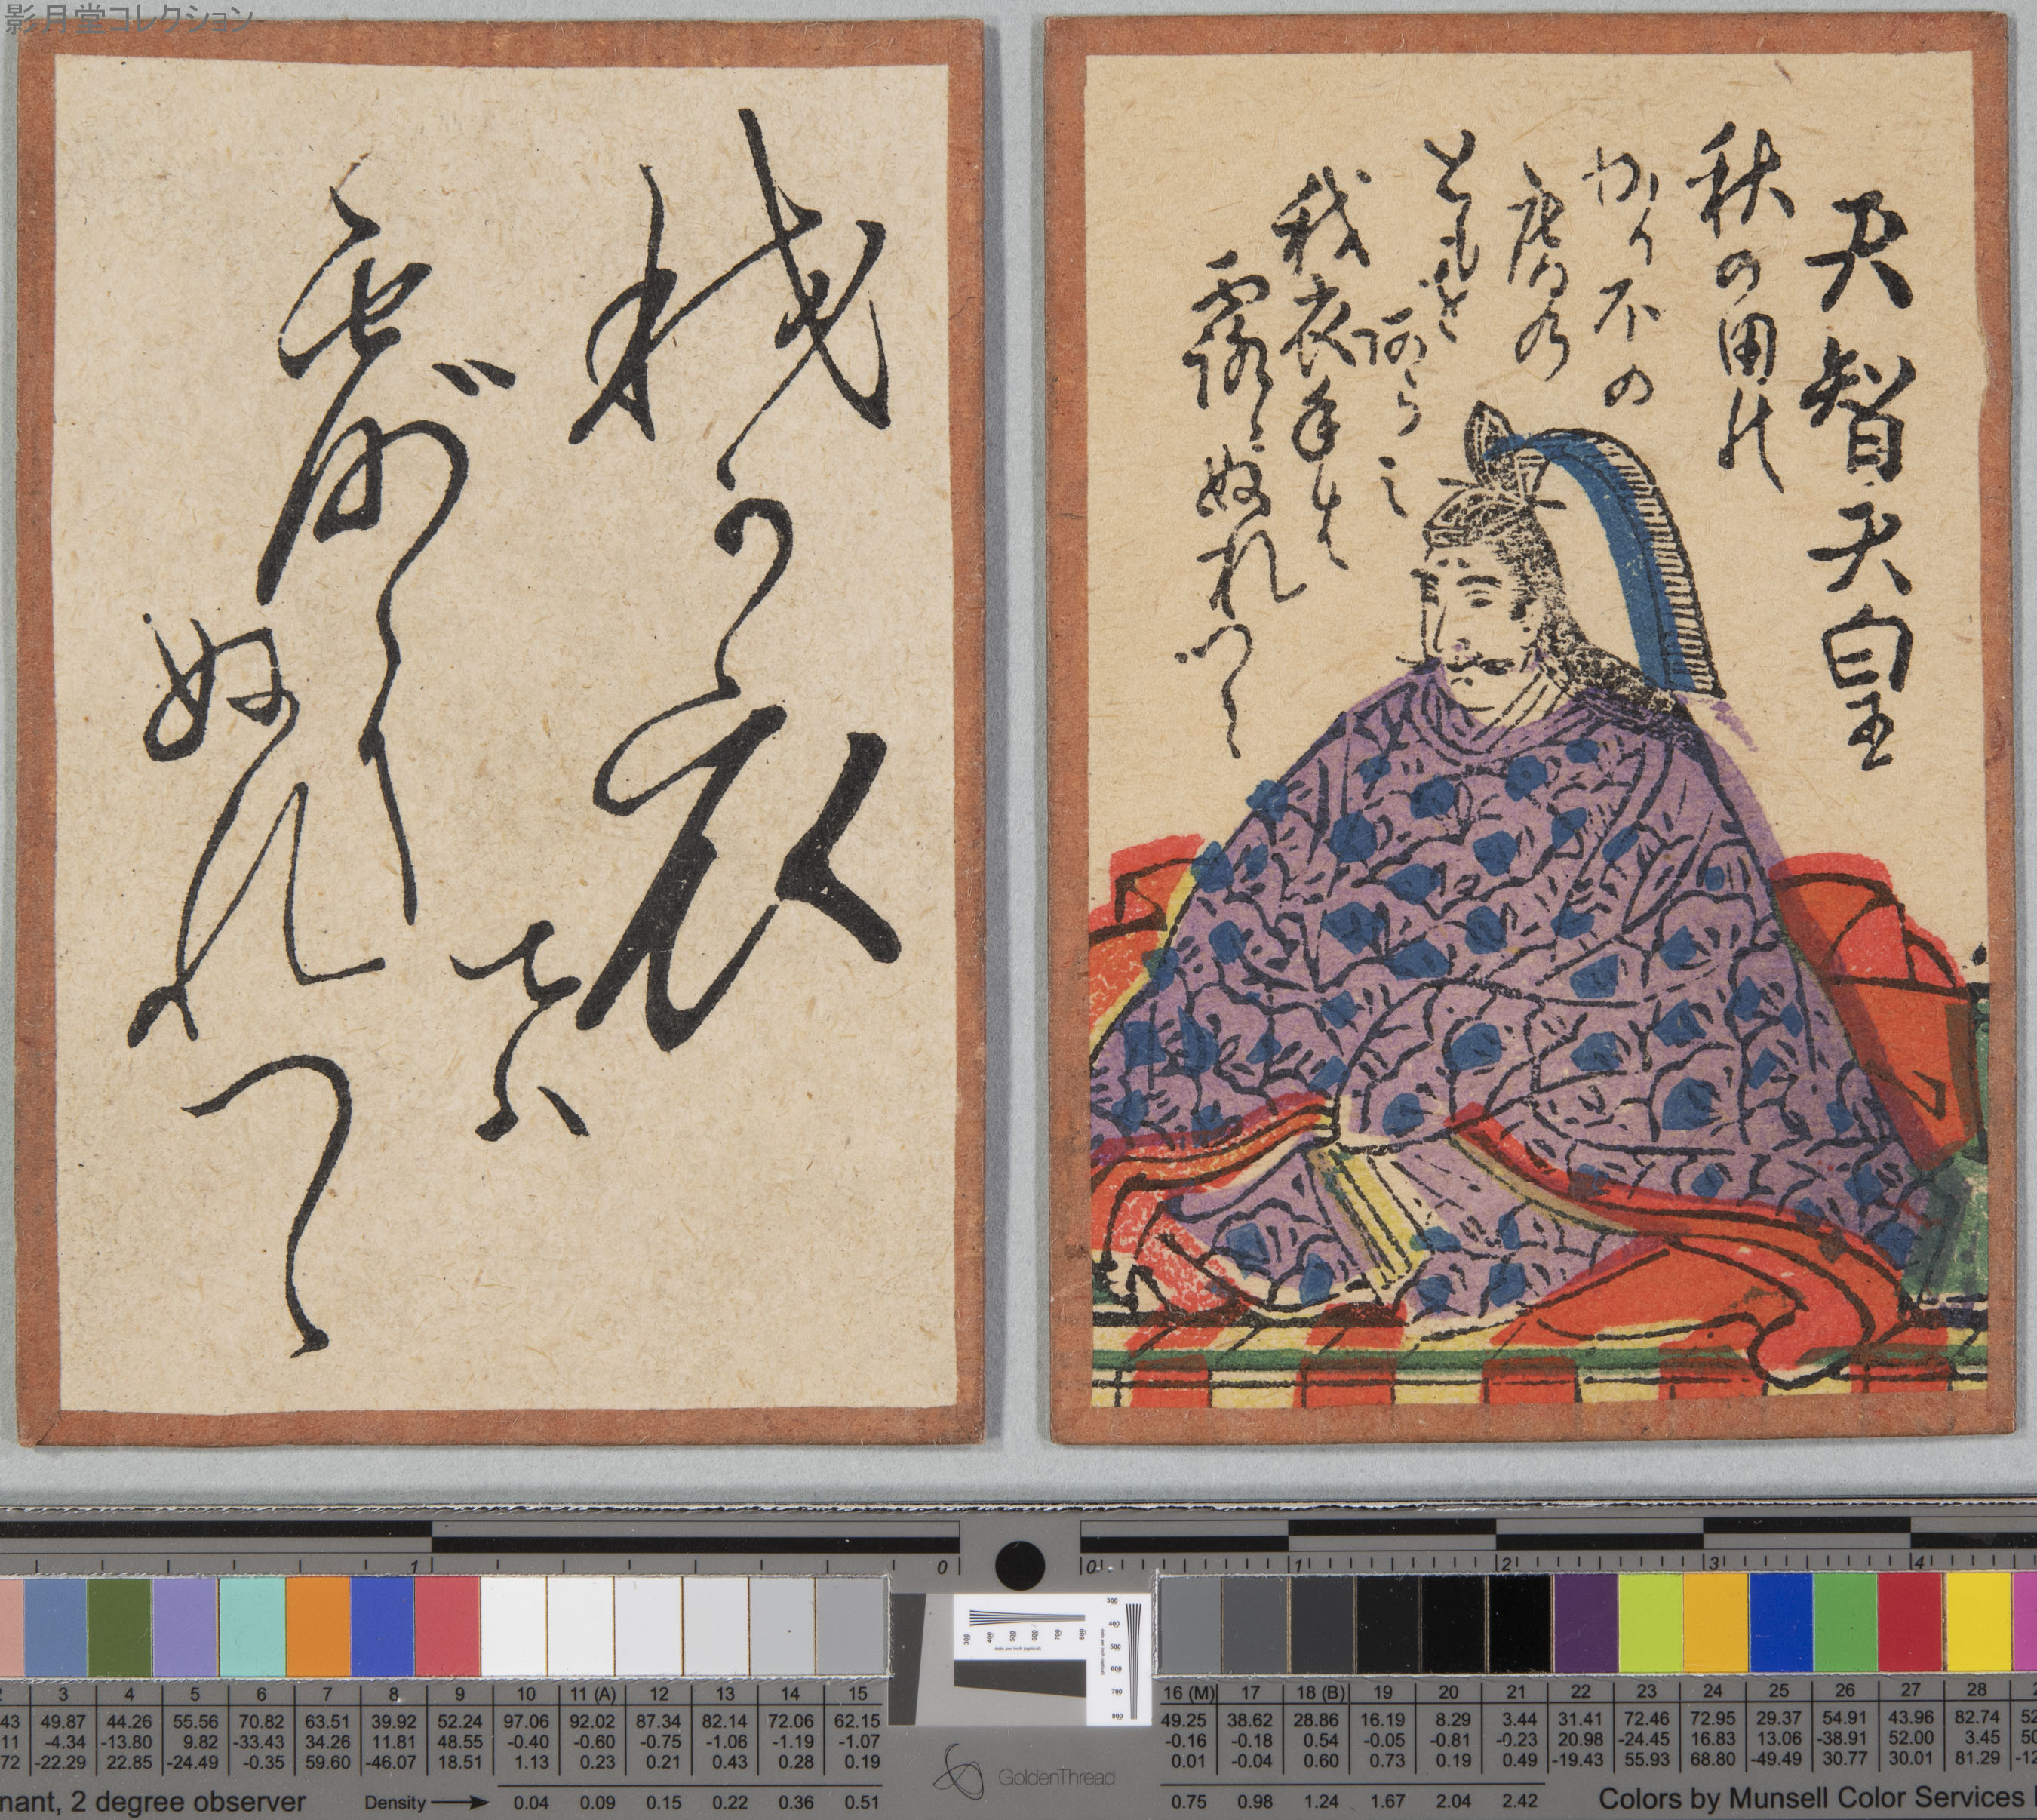 影月堂コレクション
天智天皇
秋の田の
かりほの
庵の
とまを
あらミ
我衣手は
露にぬれつゝ
我か衣
てハ
ぬれつ
1 0 0 1 2 3 4
300 400 500 600 700 800
dots per inch (optical)
300
400
500
600
700
800
dots per inch (optical)
3 4 5 6 7 8 9 10 11 (A) 12 13 14 15
49.87 44.26 55.56 70.82 63.51 39.92 52.24 97.06 92.02 87.34 82.14 72.06 62.15
-4.34 -13.80 9.82 -33.43 34.26 11.81 48.55 -0.40 -0.60 -0.75 -1.06 -1.19 -1.07
-22.29 22.85 -24.49 -0.35 59.60 -46.07 18.51 1.13 0.23 0.21 0.43 0.28 0.19
nant, 2 degree observer
Density 0.04 0.09 0.15 0.22 0.36 0.51
GoldenThread
16 (M) 17 18 (B) 19 20 21 22 23 24 25 26 27 28
49.25 38.62 28.86 16.19 8.29 3.44 31.41 72.46 72.95 29.37 54.91 43.96 82.74
-0.16 -0.18 0.54 -0.05 -0.81 -0.23 20.98 -24.45 16.83 13.06 -38.91 52.00 3.45
0.01 -0.04 0.60 0.73 0.19 0.49 -19.43 55.93 68.80 -49.49 30.77 30.01 81.29
0.75 0.98 1.24 1.67 2.04 2.42
Colors by Munsell Color Services